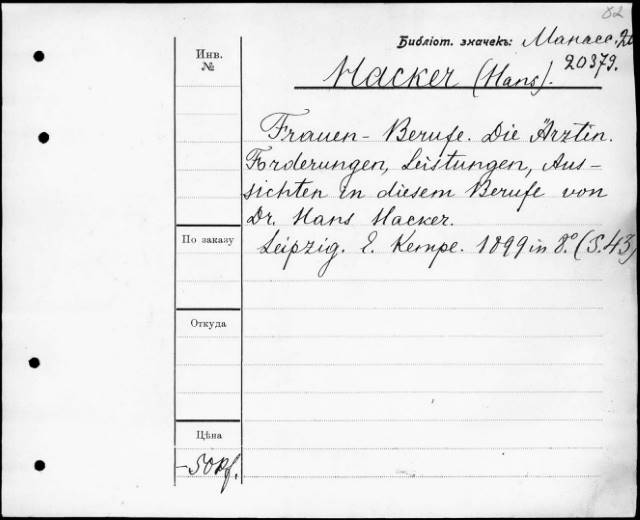 82
Библіот. значекъ: Манасс. 20
20379.
Инв.
№
Hacker (Hans).
Frauen-Berufe. Die Ärztin.
Forderungen, Leistungen, Aus-
sichten in diesem Berufe von
Dr. Hans Hacker.
По заказу
Leipzig. E. Kempe. 1899 in 8° (S. 43)
Откуда
Цѣна
-50 Pf.